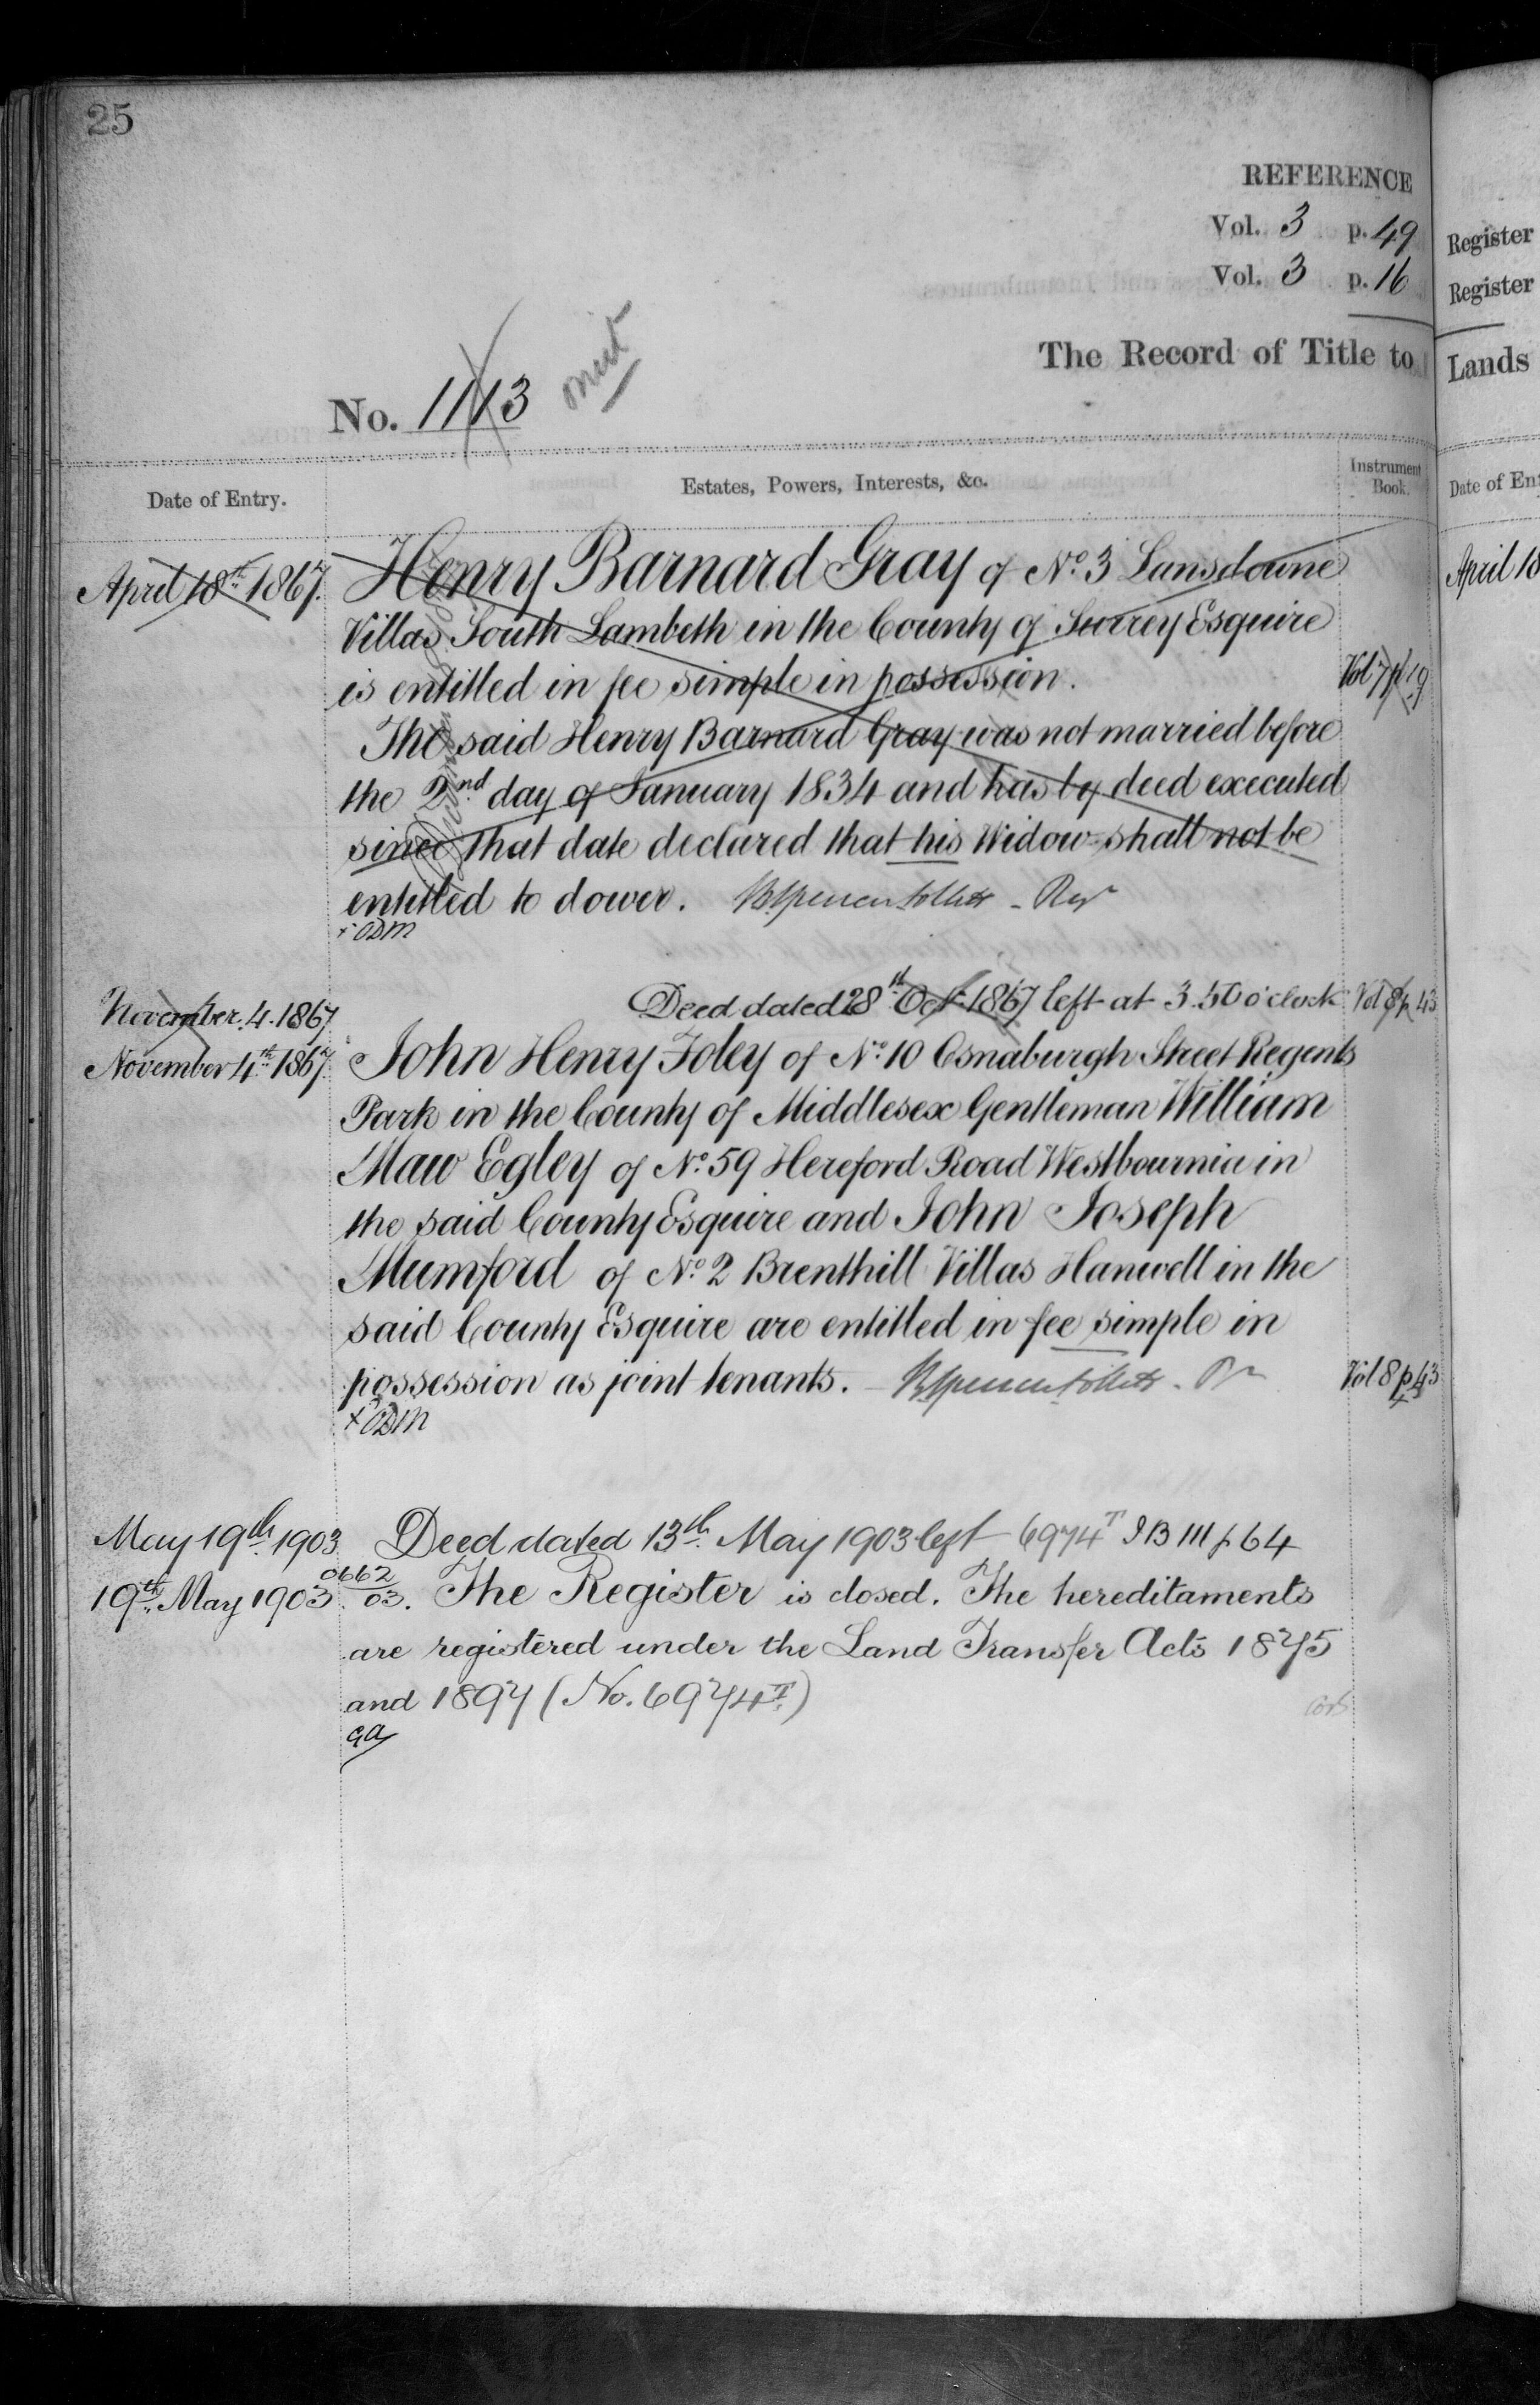 25
REFERENCE
Vol. 3 p. 49
Vol. 3 p. 16
Register
Register
The Record of Title to
Lands
No. 1113 omit
Date of Entry.
Estates, Powers, Interests, &c.
Instrument Book.
Date of En
April 18th 1867.
Henry Barnard Gray of No. 3 Lansdowne
April 18
Villas South Lambeth in the County of Surrey Esquire
is entitled in fee simple in possession.
Vol 7 p 19
The said Henry Barnard Gray was not married before
the 2nd day of January 1834 and has by deed executed
since that date declared that his Widow shall not be
entitled to dower.
+ ODM
November. 4. 1867
Deed dated 28th Oct. 1867 left at 3.50 o'clock
Vol 8 p 43
November 4th 1867.
John Henry Foley of No. 10 Osnaburgh Street Regents
Park in the County of Middlesex Gentleman William
Maw Egley of No. 59 Hereford Road Westbournia in
the said County Esquire and John Joseph
Mumford of No. 2 Brenthill Villas Hanwell in the
said County Esquire are entitled in fee simple in
possession as joint tenants.
Vol 8 p 43
+ ODM
May 19th 1903
Deed dated 13th May 1903 left 6974T I B 111 p 64
19th May 1903. 0662/03. The Register is closed. The hereditaments
are registered under the Land Transfer Acts 1875
and 1897 (No. 6974T.)
GA